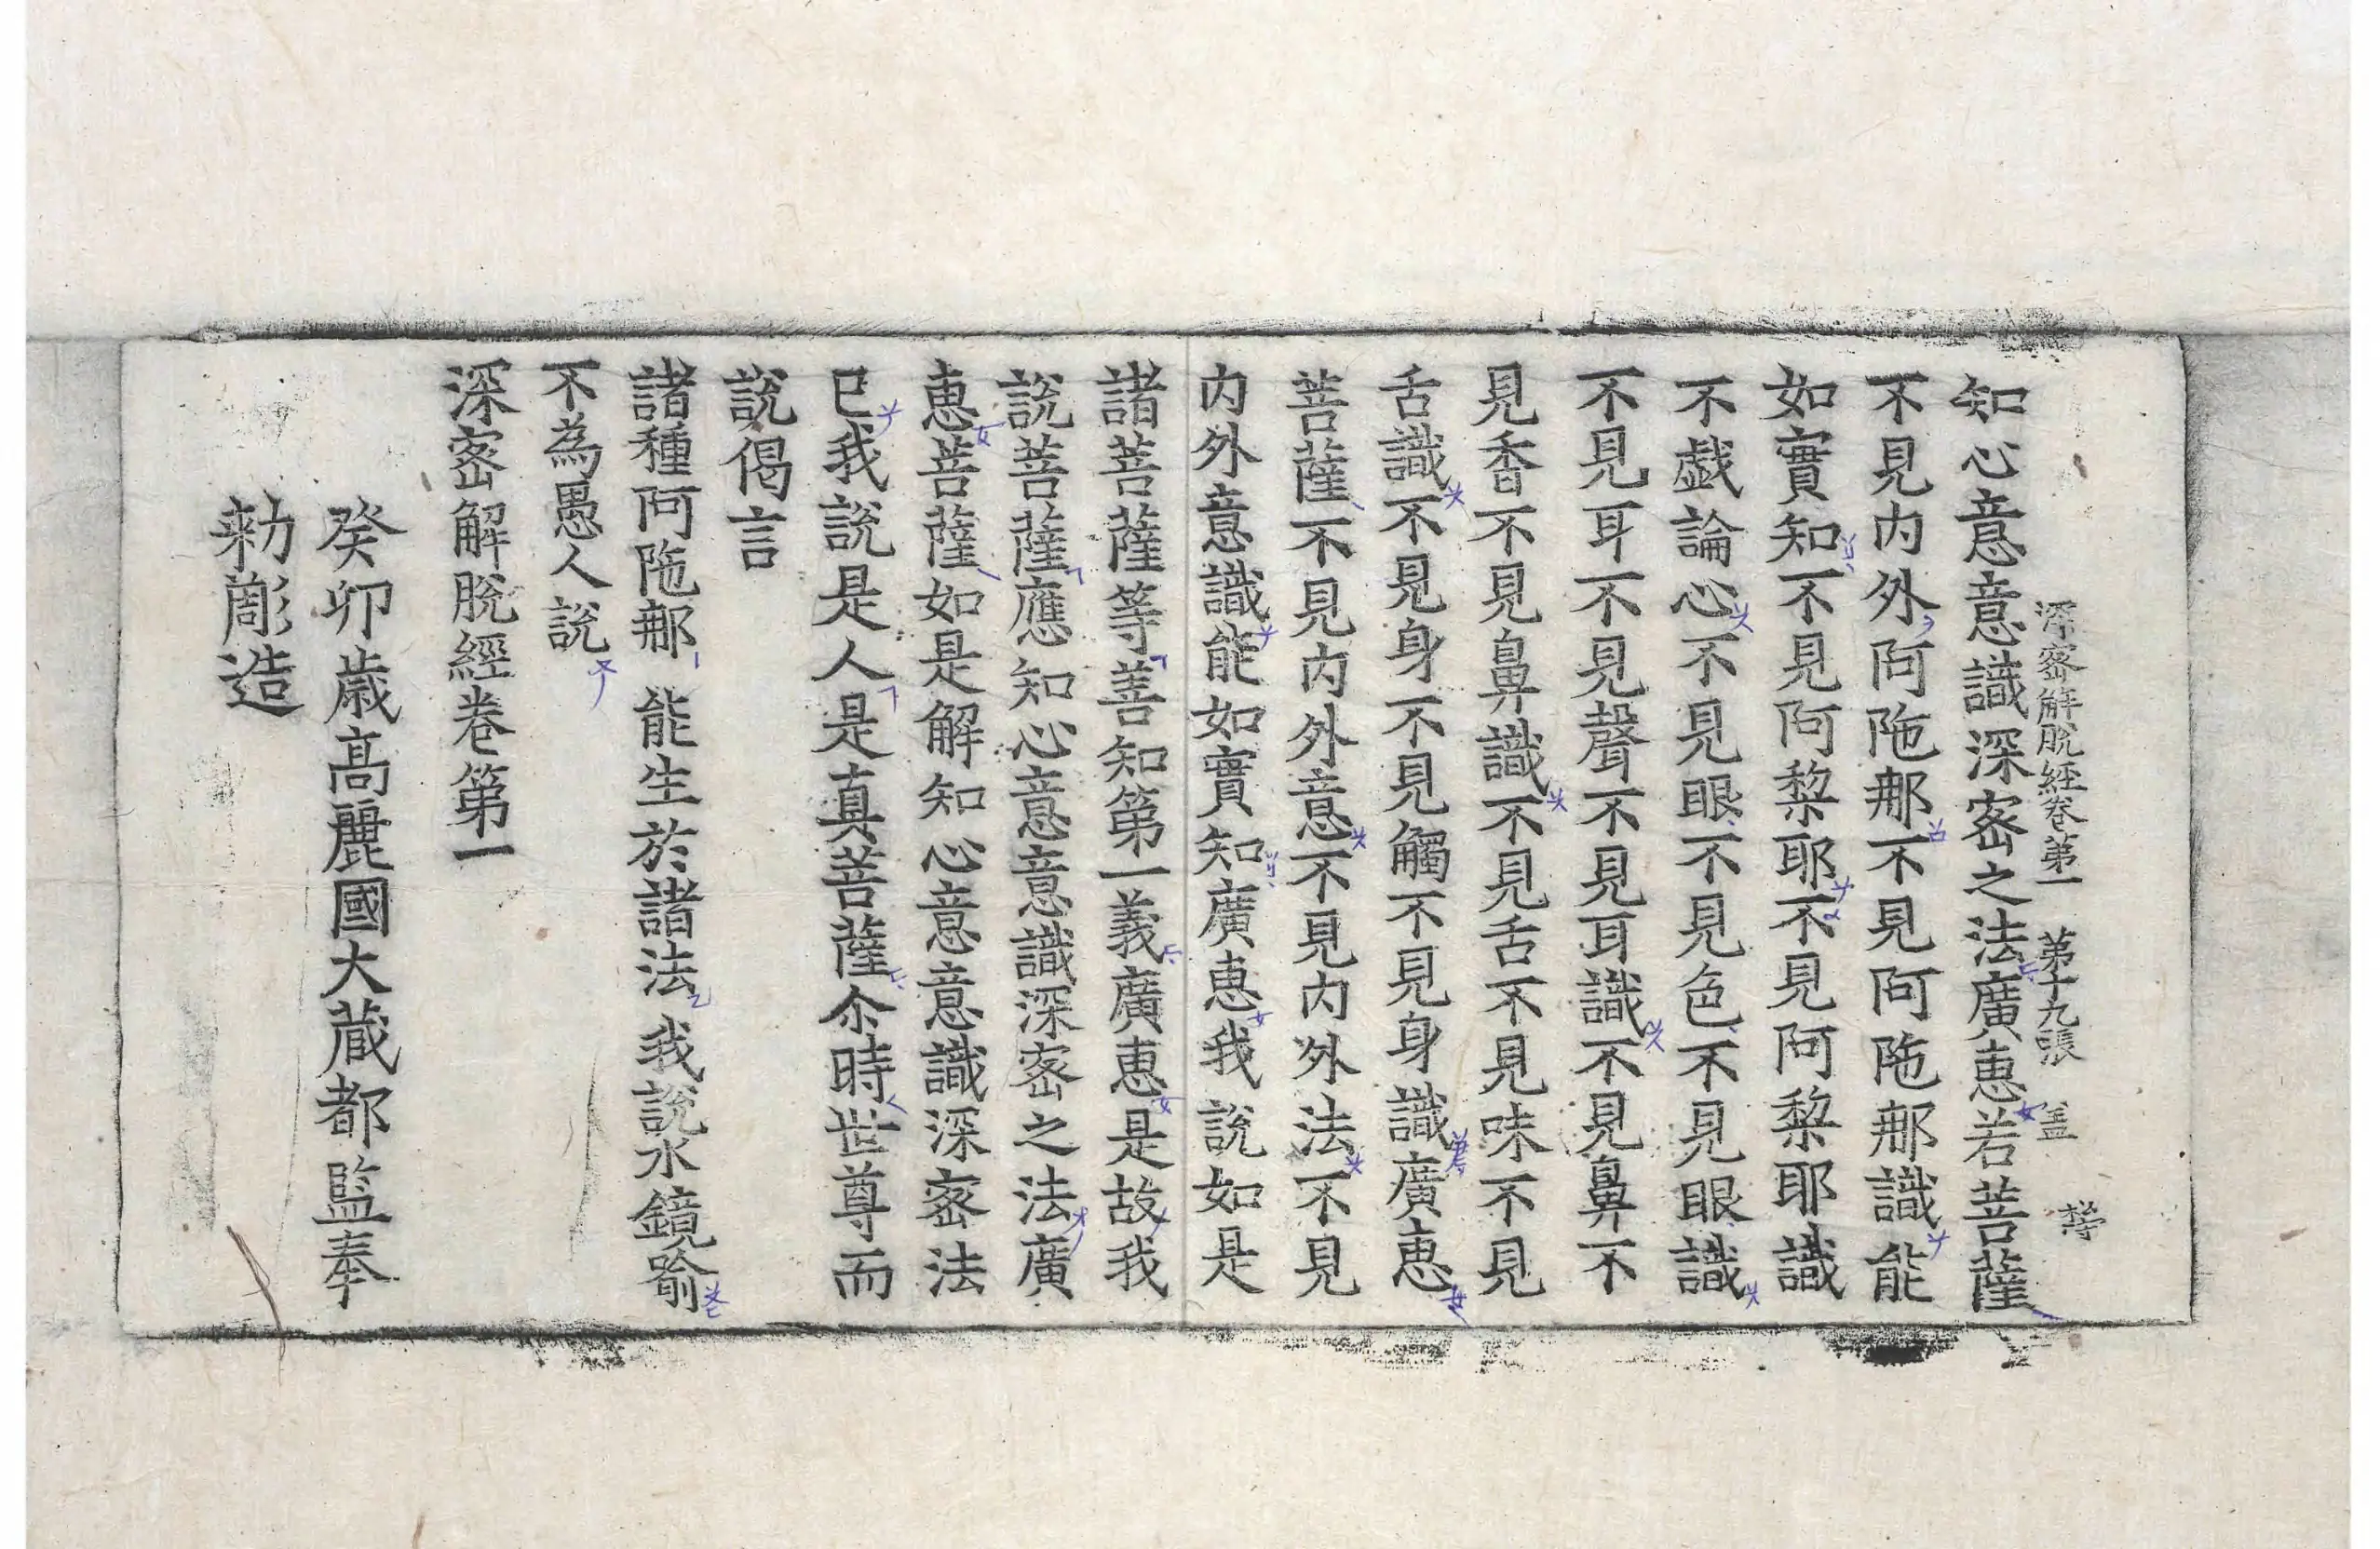 深密解脫經卷第一　第十九張　盖
知心意意識深密之法廣惠若菩薩
不見内外阿陁䣯不見阿陁䣯識能
如實知不見阿黎耶不見阿黎耶識
不戱論心不見眼不見色不見眼識
不見耳不見聲不見耳識不見鼻不
見香不見鼻識不見舌不見味不見
舌識不見身不見觸不見身識廣惠
菩薩不見内外意不見内外法不見
内外意識能如實知廣惠我說如是
諸菩薩等善知第一義廣惠是故我
說菩薩應知心意意識深密之法廣
惠菩薩如是解知心意意識深密法
已我說是人是真菩薩尒時世尊而
說偈言
諸種阿陁䣯　能生於諸法　我說水鏡喻
不為愚人說
深密解脫經卷第一
癸卯歳高麗國大藏都監奉
勑彫造